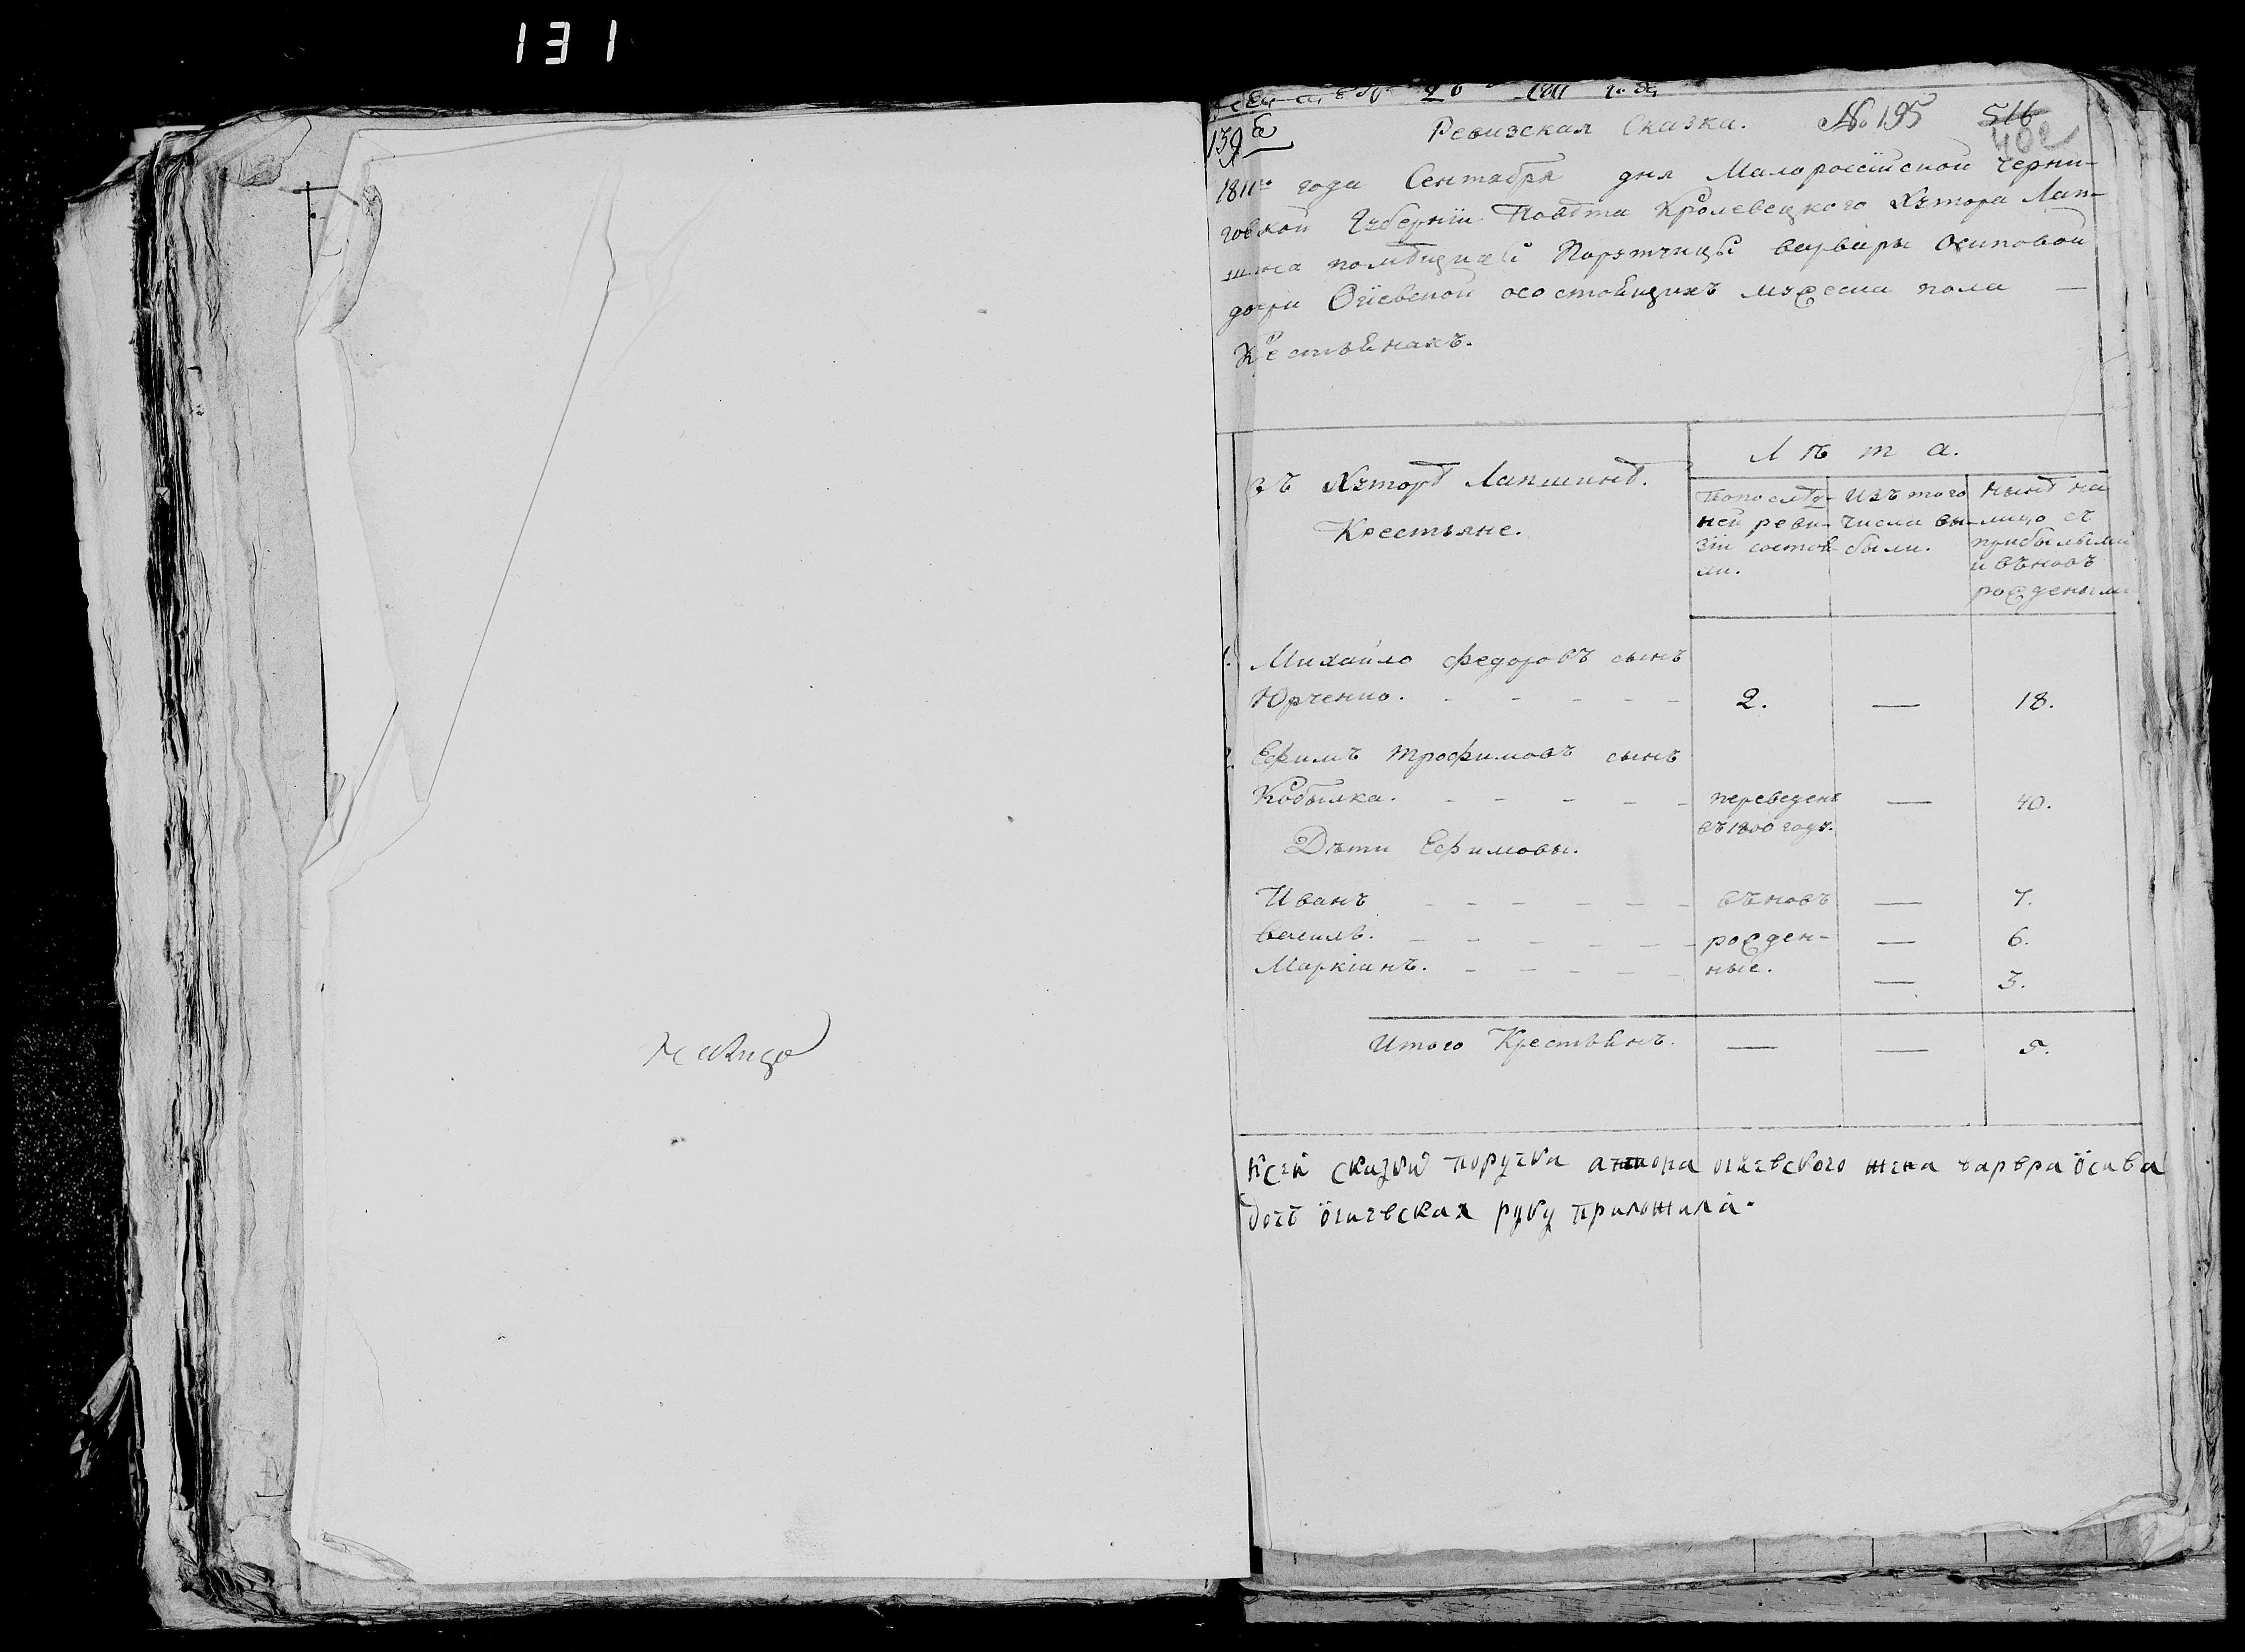 131
Ревизская Сказка. № 195 516
139 402
1811го года Сентября дня Малороссїйской Черни-
говской Губернїи Повѣта Кролевецкого Хутора Лап-
шина помѣщицы Порутчицы варвары Осиповой
дочери Огїевской о состоящихъ мужеска пола —
Крестьянахъ.
въ Хуторѣ Лапшинѣ.
Крестьяне.
Лѣта.
По послѣд-
ней реви-
зїи состоя-
ли.
Изъ того
числа вы-
были.
Нынѣ на
лицо съ
прибылыми
и вѣновъ
рождеными
1. Михайло Федоровъ сынъ
Юрченко. - - - - - 2. — 18.
2. Ефимъ Трофимовъ сынъ
Кобылка. - - - - - переведенъ — 40.
въ 1800 году.
Дѣти Ефимовы.
Иванъ - - - - - - вѣновъ — 7.
Василь. - - - - - - рожден- — 6.
Маркіанъ. - - - - - ные. — 3.
Итого Крестьянъ. — — 5.
на лицо
К сей сказки поручика огиевского жена варвра осипова
дочь огиевская руку приложила.